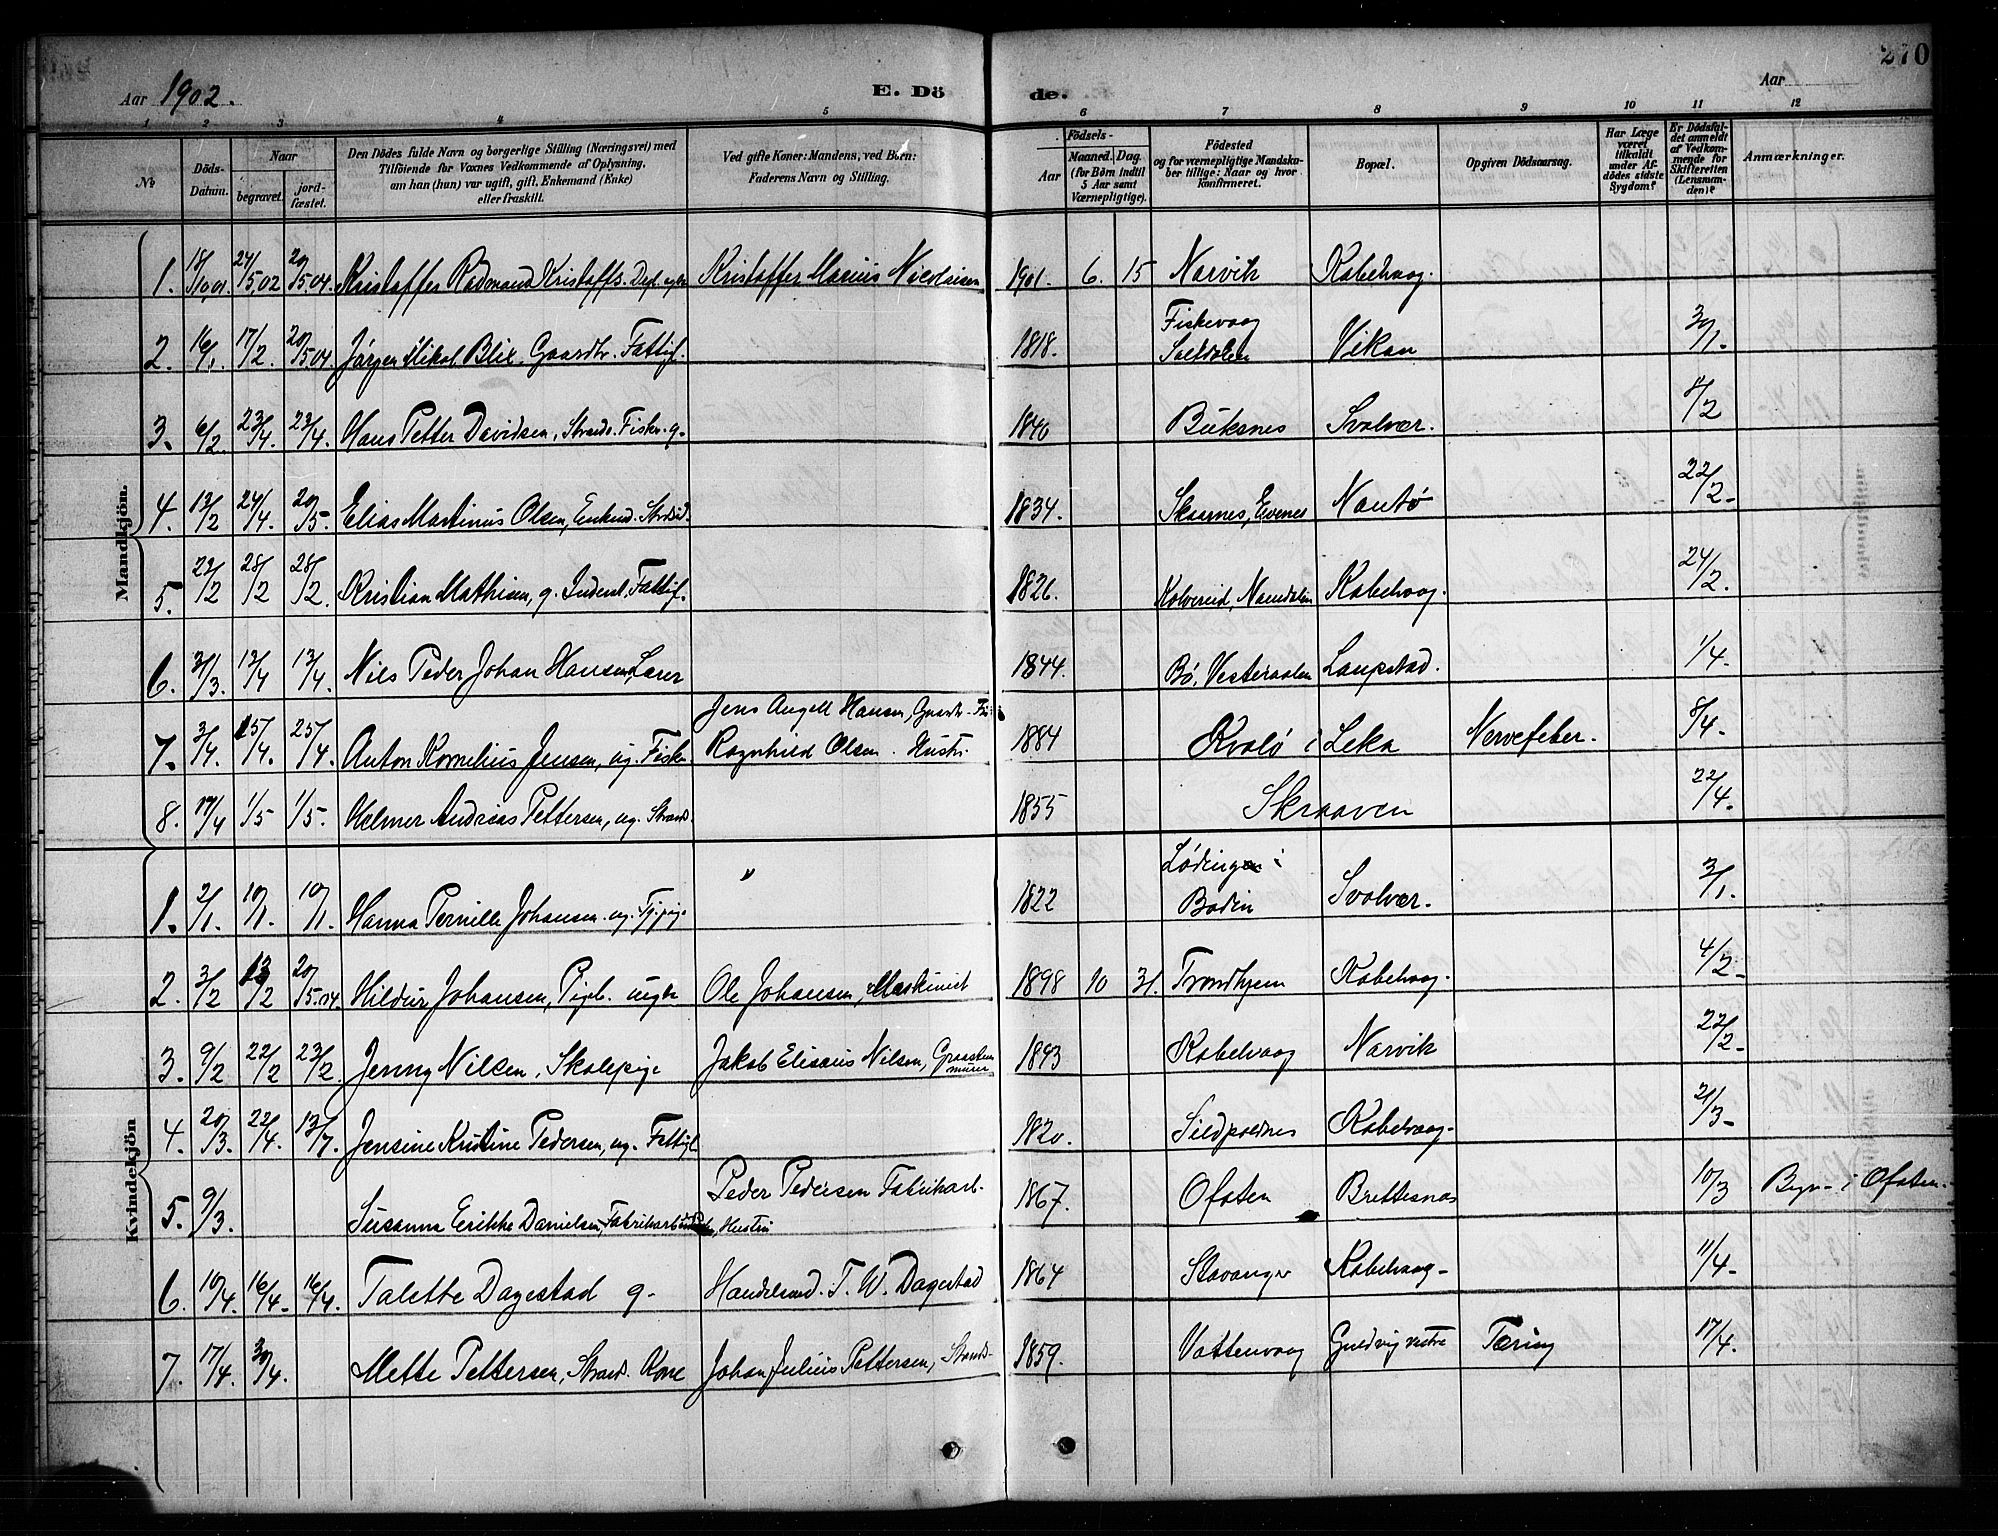 Aar 1902.
E. Dö de.
Aar
270
1 2 3 4 5 6 7 8 9 10 11 12
№
Döds-Datum.
Naar
begravet.
jordfæstet.
Den Dödes fulde Navn og borgerlige Stilling (Næringsvei) med
Tilföiende for Voxnes Vedkommende af Oplysning,
om han (hun) var ugift, gift, Enkemand (Enke)
eller fraskilt.
Ved gifte Koner: Mandens, ved Börn:
Faderens Navn og Stilling.
Födsels-
Aar
Maaned. Dag.
(for Börn indtil
5 Aar samt
Værnepligtige).
Födested
og for værnepligtige Mandska-
ber tillige: Naar og hvor
konfirmeret.
Bopæl.
Opgiven Dödsaarsag.
Har Læge
været
tilkaldt
under Af-
dödes sidste
Sygdom?
Er Dödsfal-
det anmeldt
af Vedkom-
mende for
Skifteretten
(Lensman-
den)?
Anmærkninger.
Mandkjön.
1. 18/10,01. 24/5,02 20/5.04. Kristoffer Kristoffer Marius Nicolaisen 1901. 6. 15 Narvik Kabelvaag.
2. 16/1. 17/2. 20/5.04. Jørgen Mikal Blix. Gaardbr. Fattigl. 1818. Fiskevaag Saltdalen Vikan 30/1.
3. 6/2. 23/4. 23/4. Hans Petter Davidsen, Strands. Fisker. g. 1840 Buksnes Svolvær. 8/2
4. 13/2 24/4. 20/5. Elias Martinus Olsen, Enkmd. Strands. 1834. Skaarnes, Evenes 22/2.
5. 22/2 28/2 28/2. Kristian Mathisen, g. Inderst, Fattigl. 1826. Kolvereid, Namdalen Kabelvaag. 24/2.
6. 31/3. 13/4 13/4. Nils Peder Johan Hansen, Lærer 1844. Bø, Vesteraalen Laupstad. 1/4.
7. 3/4. 25/4. 25/4 Anton Kornelius Jensen, ug. Fisker Jens Angell Hansen, Gaardbr.
Ragnhild Olsen. Hustr. 1884 Kvalø i Leka Nervefeber. 8/4.
8. 17/4 1/5 1/5. Helmer Andreas Pettersen, ug. Strand. 1855 Skraaven 22/4.
Kvindekjön
1. 2/1. 10/1. 10/1. Hanna Pernille Johansen. ug. " 1822 Løding i Bodin Svolvær. 3/1.
2. 3/2 13/2 20/5.04. Hildur Johansen, Pigeb. Ole Johansen, Maskinist 1898 10 31. Trondhjem Kabelvaag. 4/2.
3. 9/2 22/2 23/2. Jenny Nilsen, Skolepige Jakob Elisæus Nilsen, Graasten murer 1893 Kabelvaag Narvik 22/2.
4. 20/3. 22/4. 13/7. Jensine Kristine Pedersen, ug. Fattigl. 1820. Sildpoldnes Kabelvaag. 21/3.
5. 9/3. Susanna Erikke Danielsen, Peder Pedersen Fabrikarb.
Hustru 1867. Ofoten Brettesnæs 10/3 i Ofoten.
6. 10/4. 16/4. 16/4. Talette Dagestad g. Handelsmd. T. W. Dagestad 1864 Stavanger Kabelvaag. 11/4.
7. 17/4. 30/4. Mette Pettersen, Strands. Kone Johan Julius Pettersen, Strands. 1859. Vattenvaag Guldvig vestre Tæring 17/4.